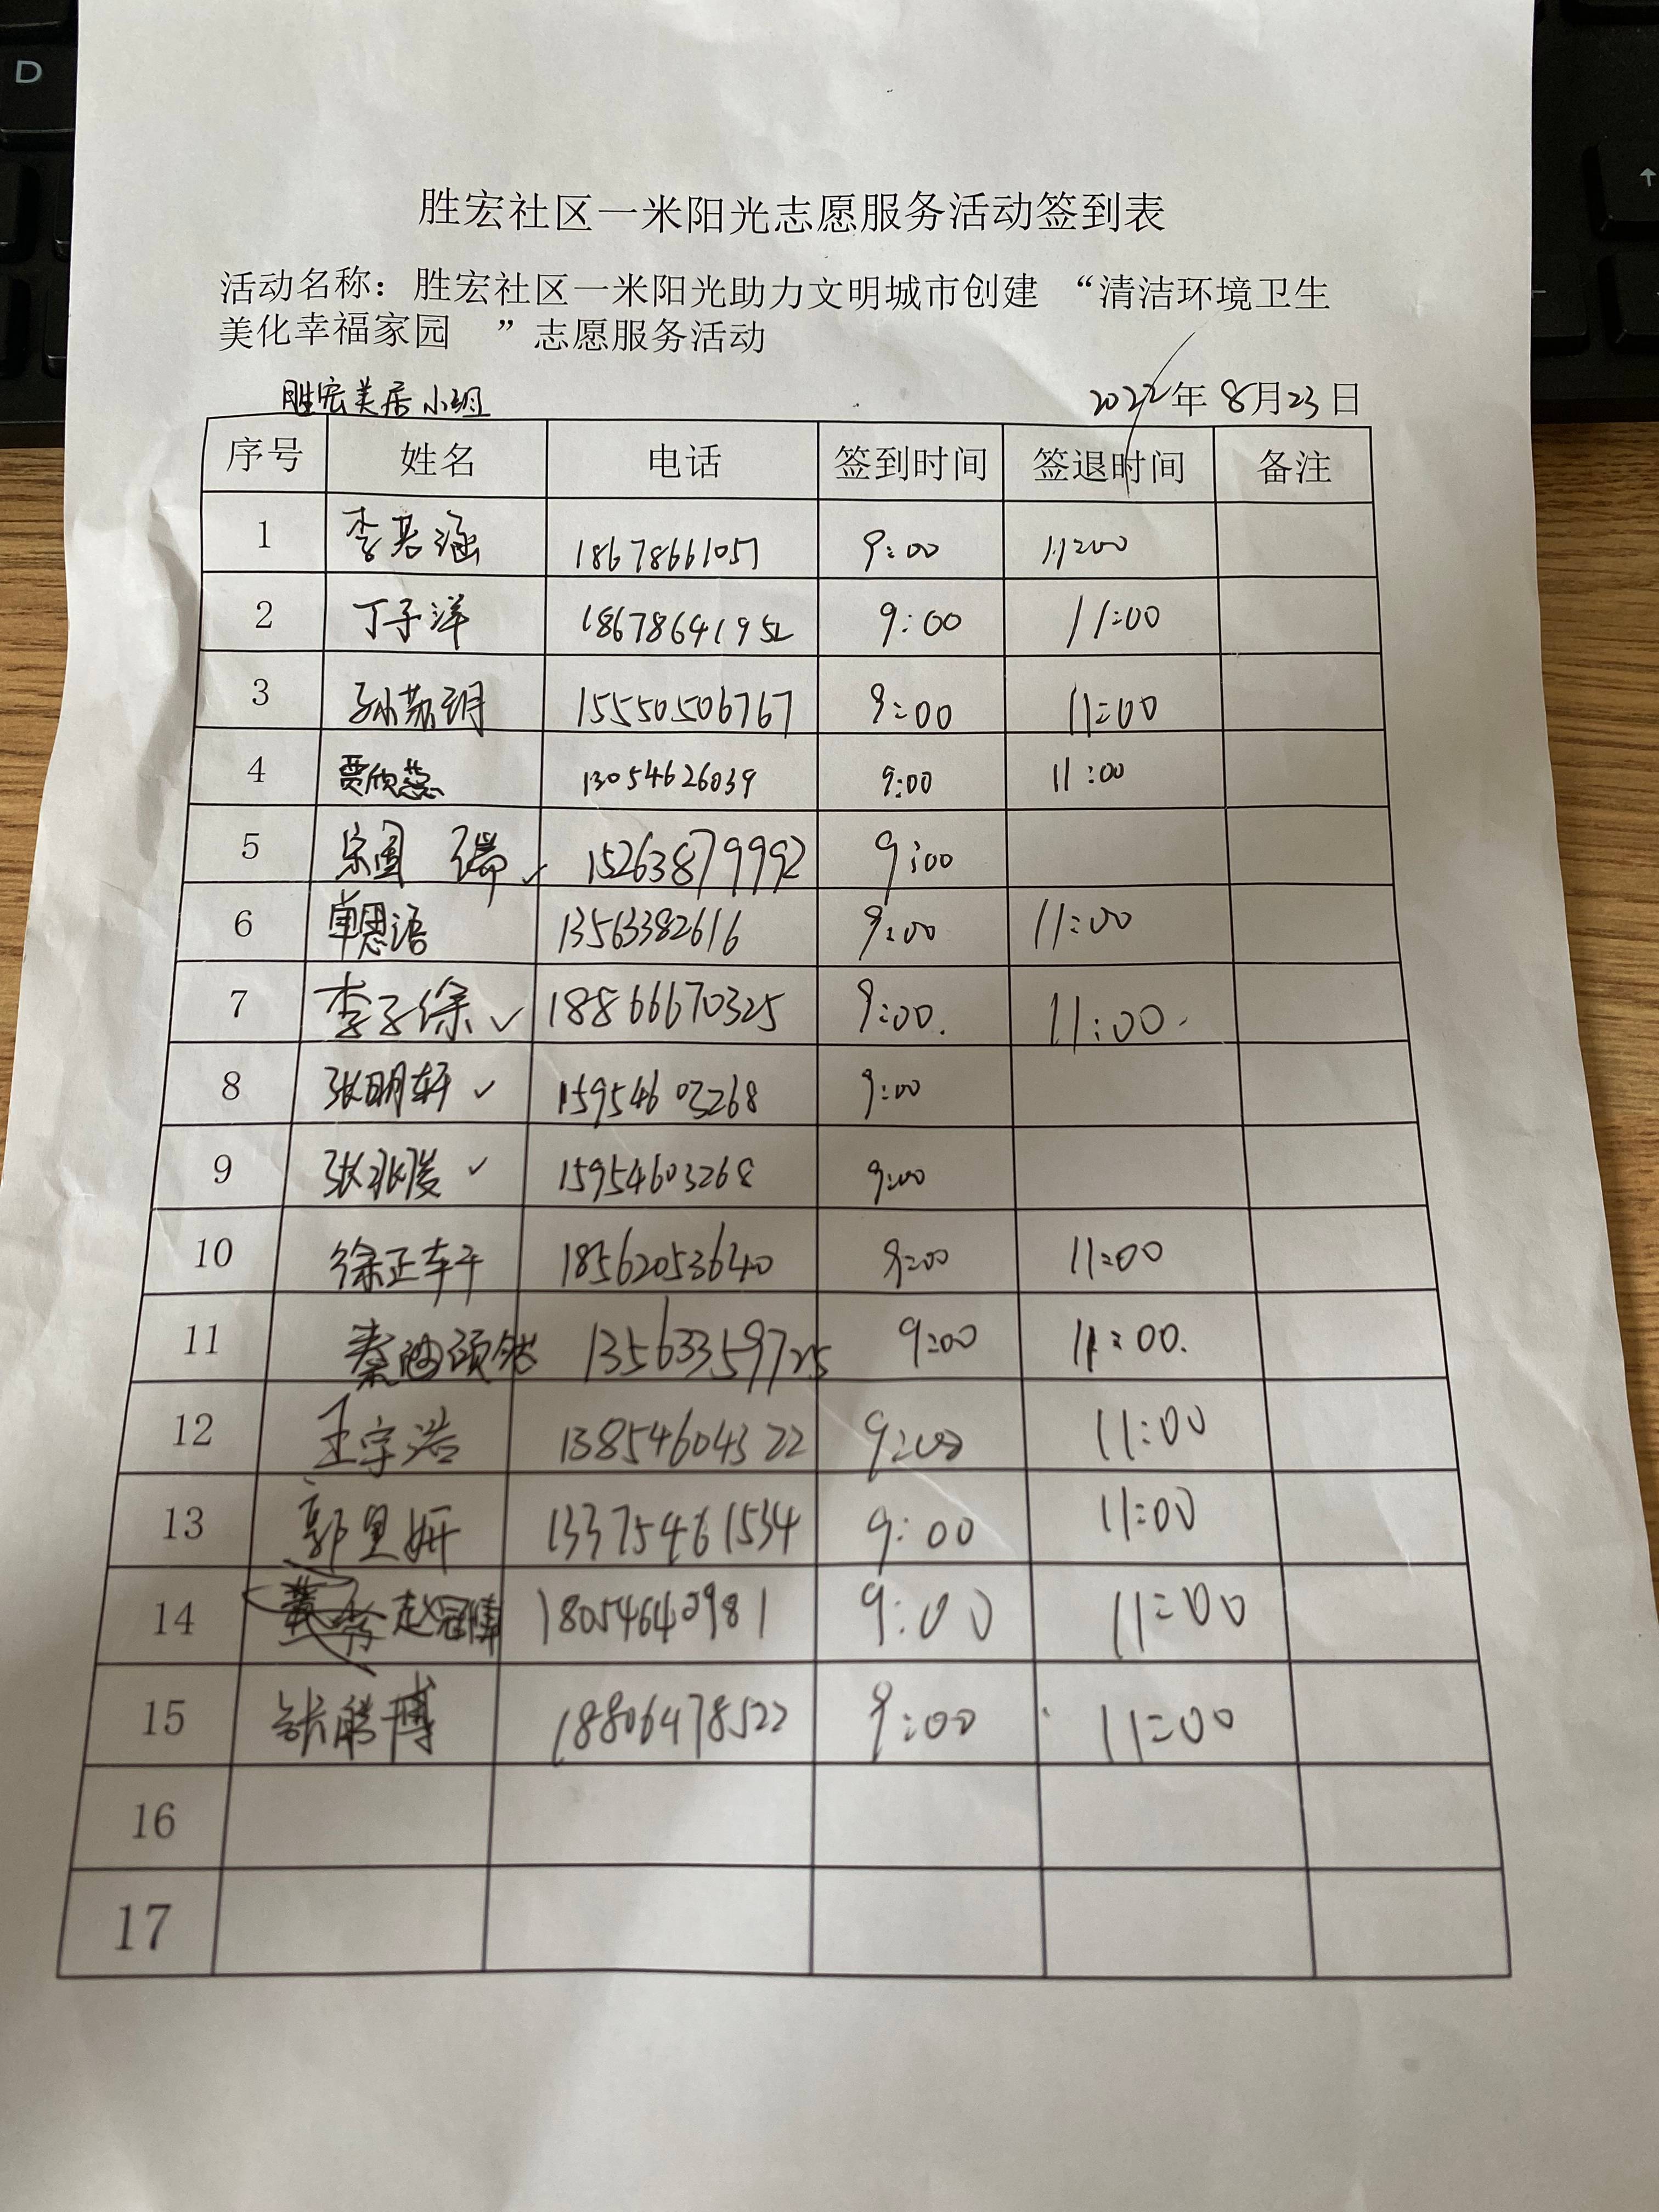 D
胜宏社区一米阳光志愿服务活动签到表
活动名称：胜宏社区一米阳光助力文明城市创建 “清洁环境卫生
美化幸福家园 ”志愿服务活动
胜宏美居小组 2022年8月23日
序号 姓名 电话 签到时间 签退时间 备注
1 李若涵 18678661057 9:00 11:00
2 丁子洋 18678641952 9:00 11:00
3 孙荔玥 15550506767 9:00 11:00
4 贾欣蕊 13054626039 9:00 11:00
5 宗国瑞 ✓ 15263879992 9:00
6 单思语 13563382616 9:00 11:00
7 李子徐 ✓ 18866670325 9:00. 11:00.
8 张明轩 ✓ 15954603268 9:00
9 张兆俊 ✓ 15954603268 9:00
10 徐正轩 18562053640 9:00 11:00
11 秦 13563359725 9:00 11:00.
12 王宇浩 13854604322 9:00 11:00
13 郭里妍 13375461534 9:00 11:00
14 赵冠博 18054640981 9:00 11:00
15 张腾博 18806478522 9:00 11:00
16
17